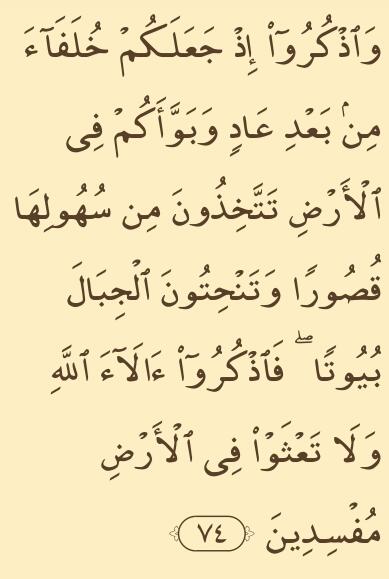 وَٱذْكُرُوٓا۟ إِذْ جَعَلَكُمْ خُلَفَآءَ
مِنۢ بَعْدِ عَادٍ وَبَوَّأَكُمْ فِى
ٱلْأَرْضِ تَتَّخِذُونَ مِن سُهُولِهَا
قُصُورًا وَتَنْحِتُونَ ٱلْجِبَالَ
بُيُوتًا ۖ فَٱذْكُرُوٓا۟ ءَالَآءَ ٱللَّهِ
وَلَا تَعْثَوْا۟ فِى ٱلْأَرْضِ
مُفْسِدِينَ ٧٤